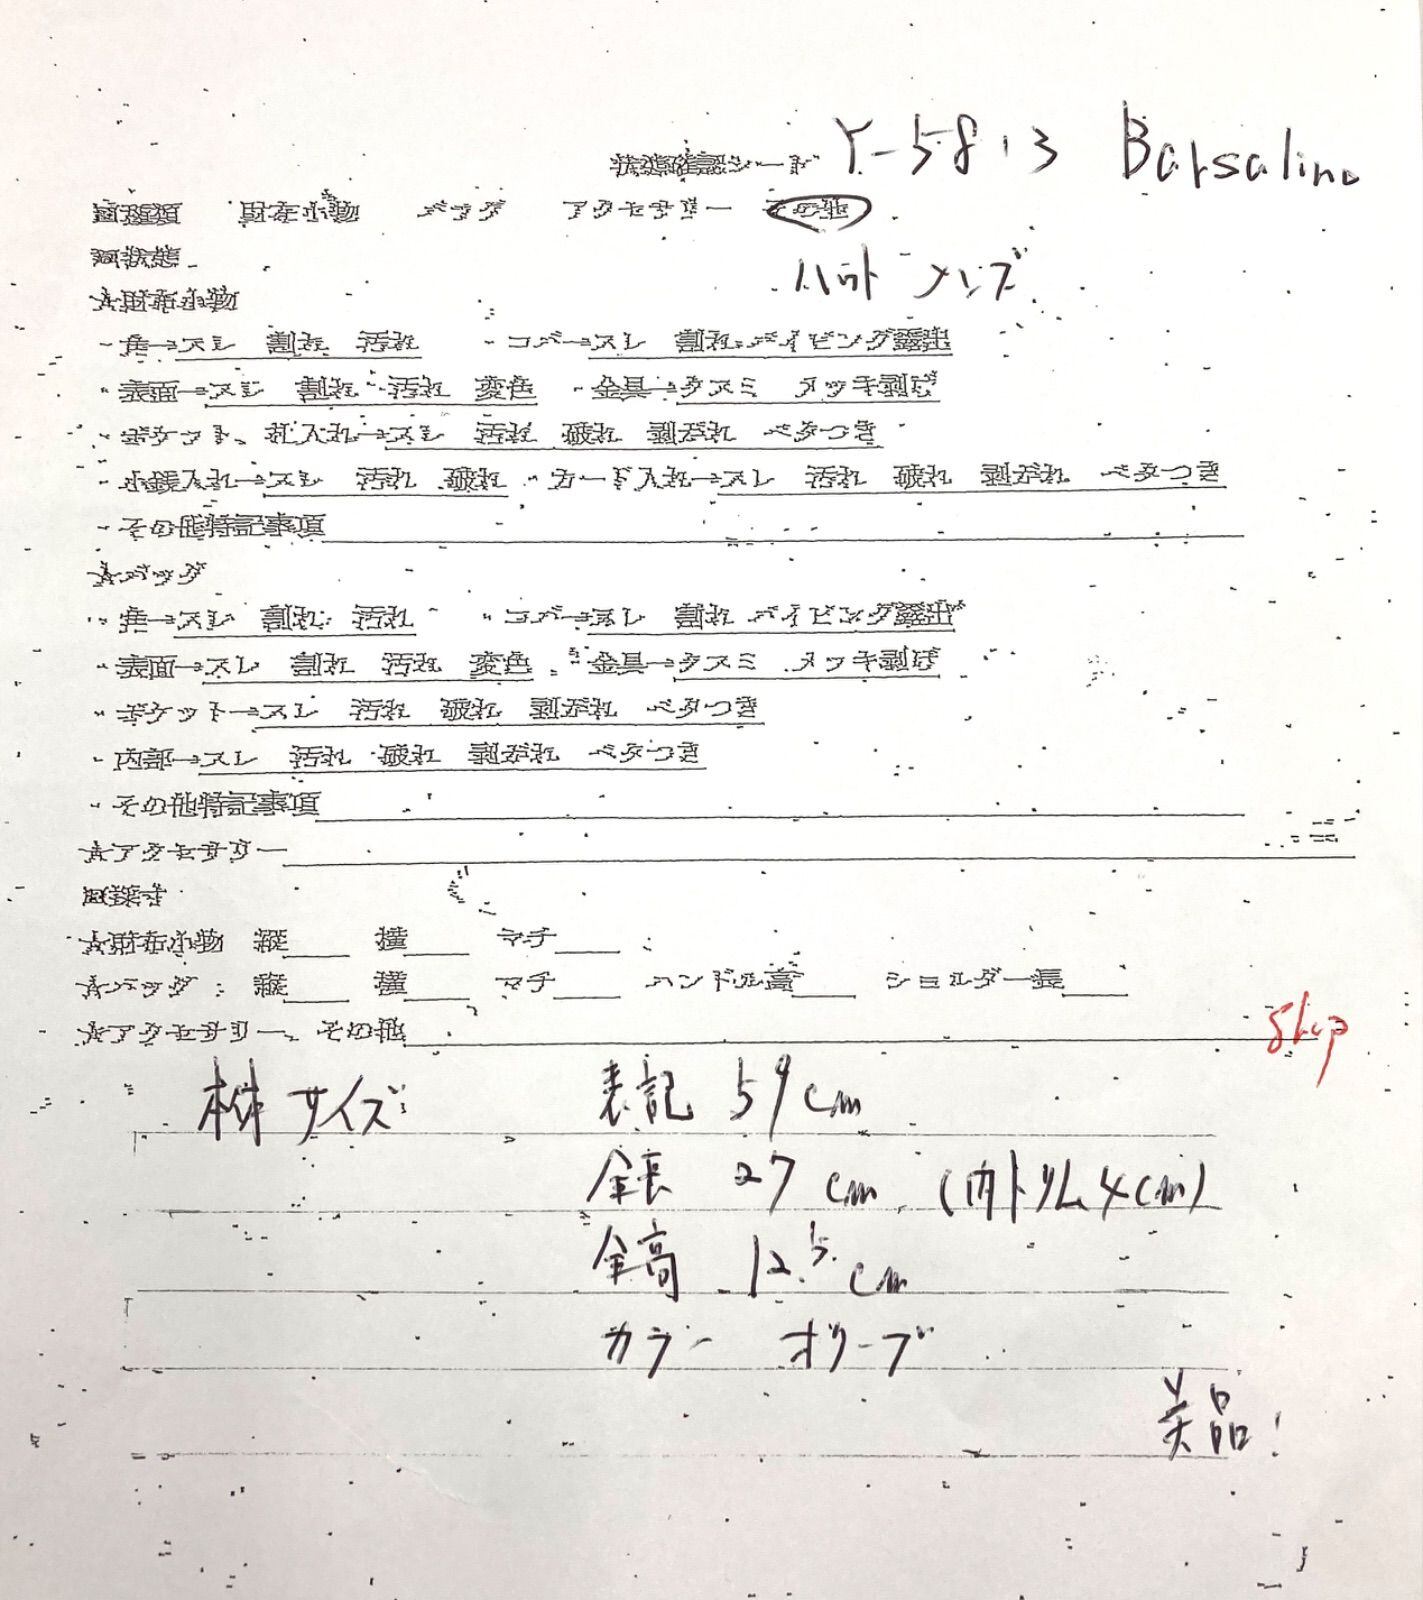 状態確認シート Y-5813 Borsalino
■種類 財布小物 バッグ アクセサリー その他
■状態 ハット メンズ
★財布小物
・角→スレ 割れ 汚れ ・コバ→スレ 割れ パイピング露出
・表面→スレ 割れ 汚れ 変色 ・金具→クスミ メッキ剥げ
・ポケット、札入れ→スレ 汚れ 破れ 剥がれ ベタつき
・小銭入れ→スレ 汚れ 破れ ・カード入れ→スレ 汚れ 破れ 剥がれ ベタつき
・その他特記事項
★バッグ
・角→スレ 割れ 汚れ ・コバ→スレ 割れ パイピング露出
・表面→スレ 割れ 汚れ 変色 ・金具→クスミ メッキ剥げ
・ポケット→スレ 汚れ 破れ 剥がれ ベタつき
・内部→スレ 汚れ 破れ 剥がれ ベタつき
・その他特記事項
★アクセサリー
■採寸
★財布小物 縦 横 マチ
★バッグ: 縦 横 マチ ハンドル高 ショルダー長
★アクセサリー、その他
サイズ 表記 59cm
全長 27cm (内トリム4cm)
全高 12.5cm
カラー オリーブ
美品!